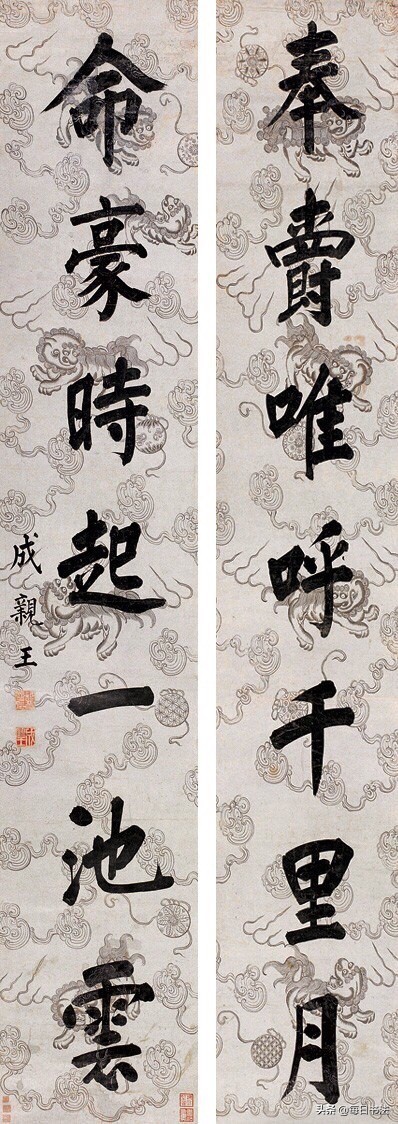 奉爵唯呼千里月
命豪時起一池雲
成親王
头条 @每日书法